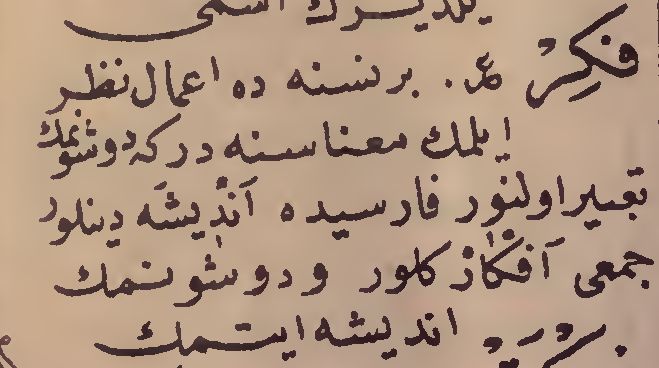 یلدیرك اسمی
فِكِرْ ع. برنسنه ده اعمال نظر
ایلمك معناسنه دركه دوشونمك
تعبیر اولنور فارسیده اَنْدِیشَه دینلور
جمعی اَفْكَارْ كلور و دوشونمك
اندیشه ایتمك